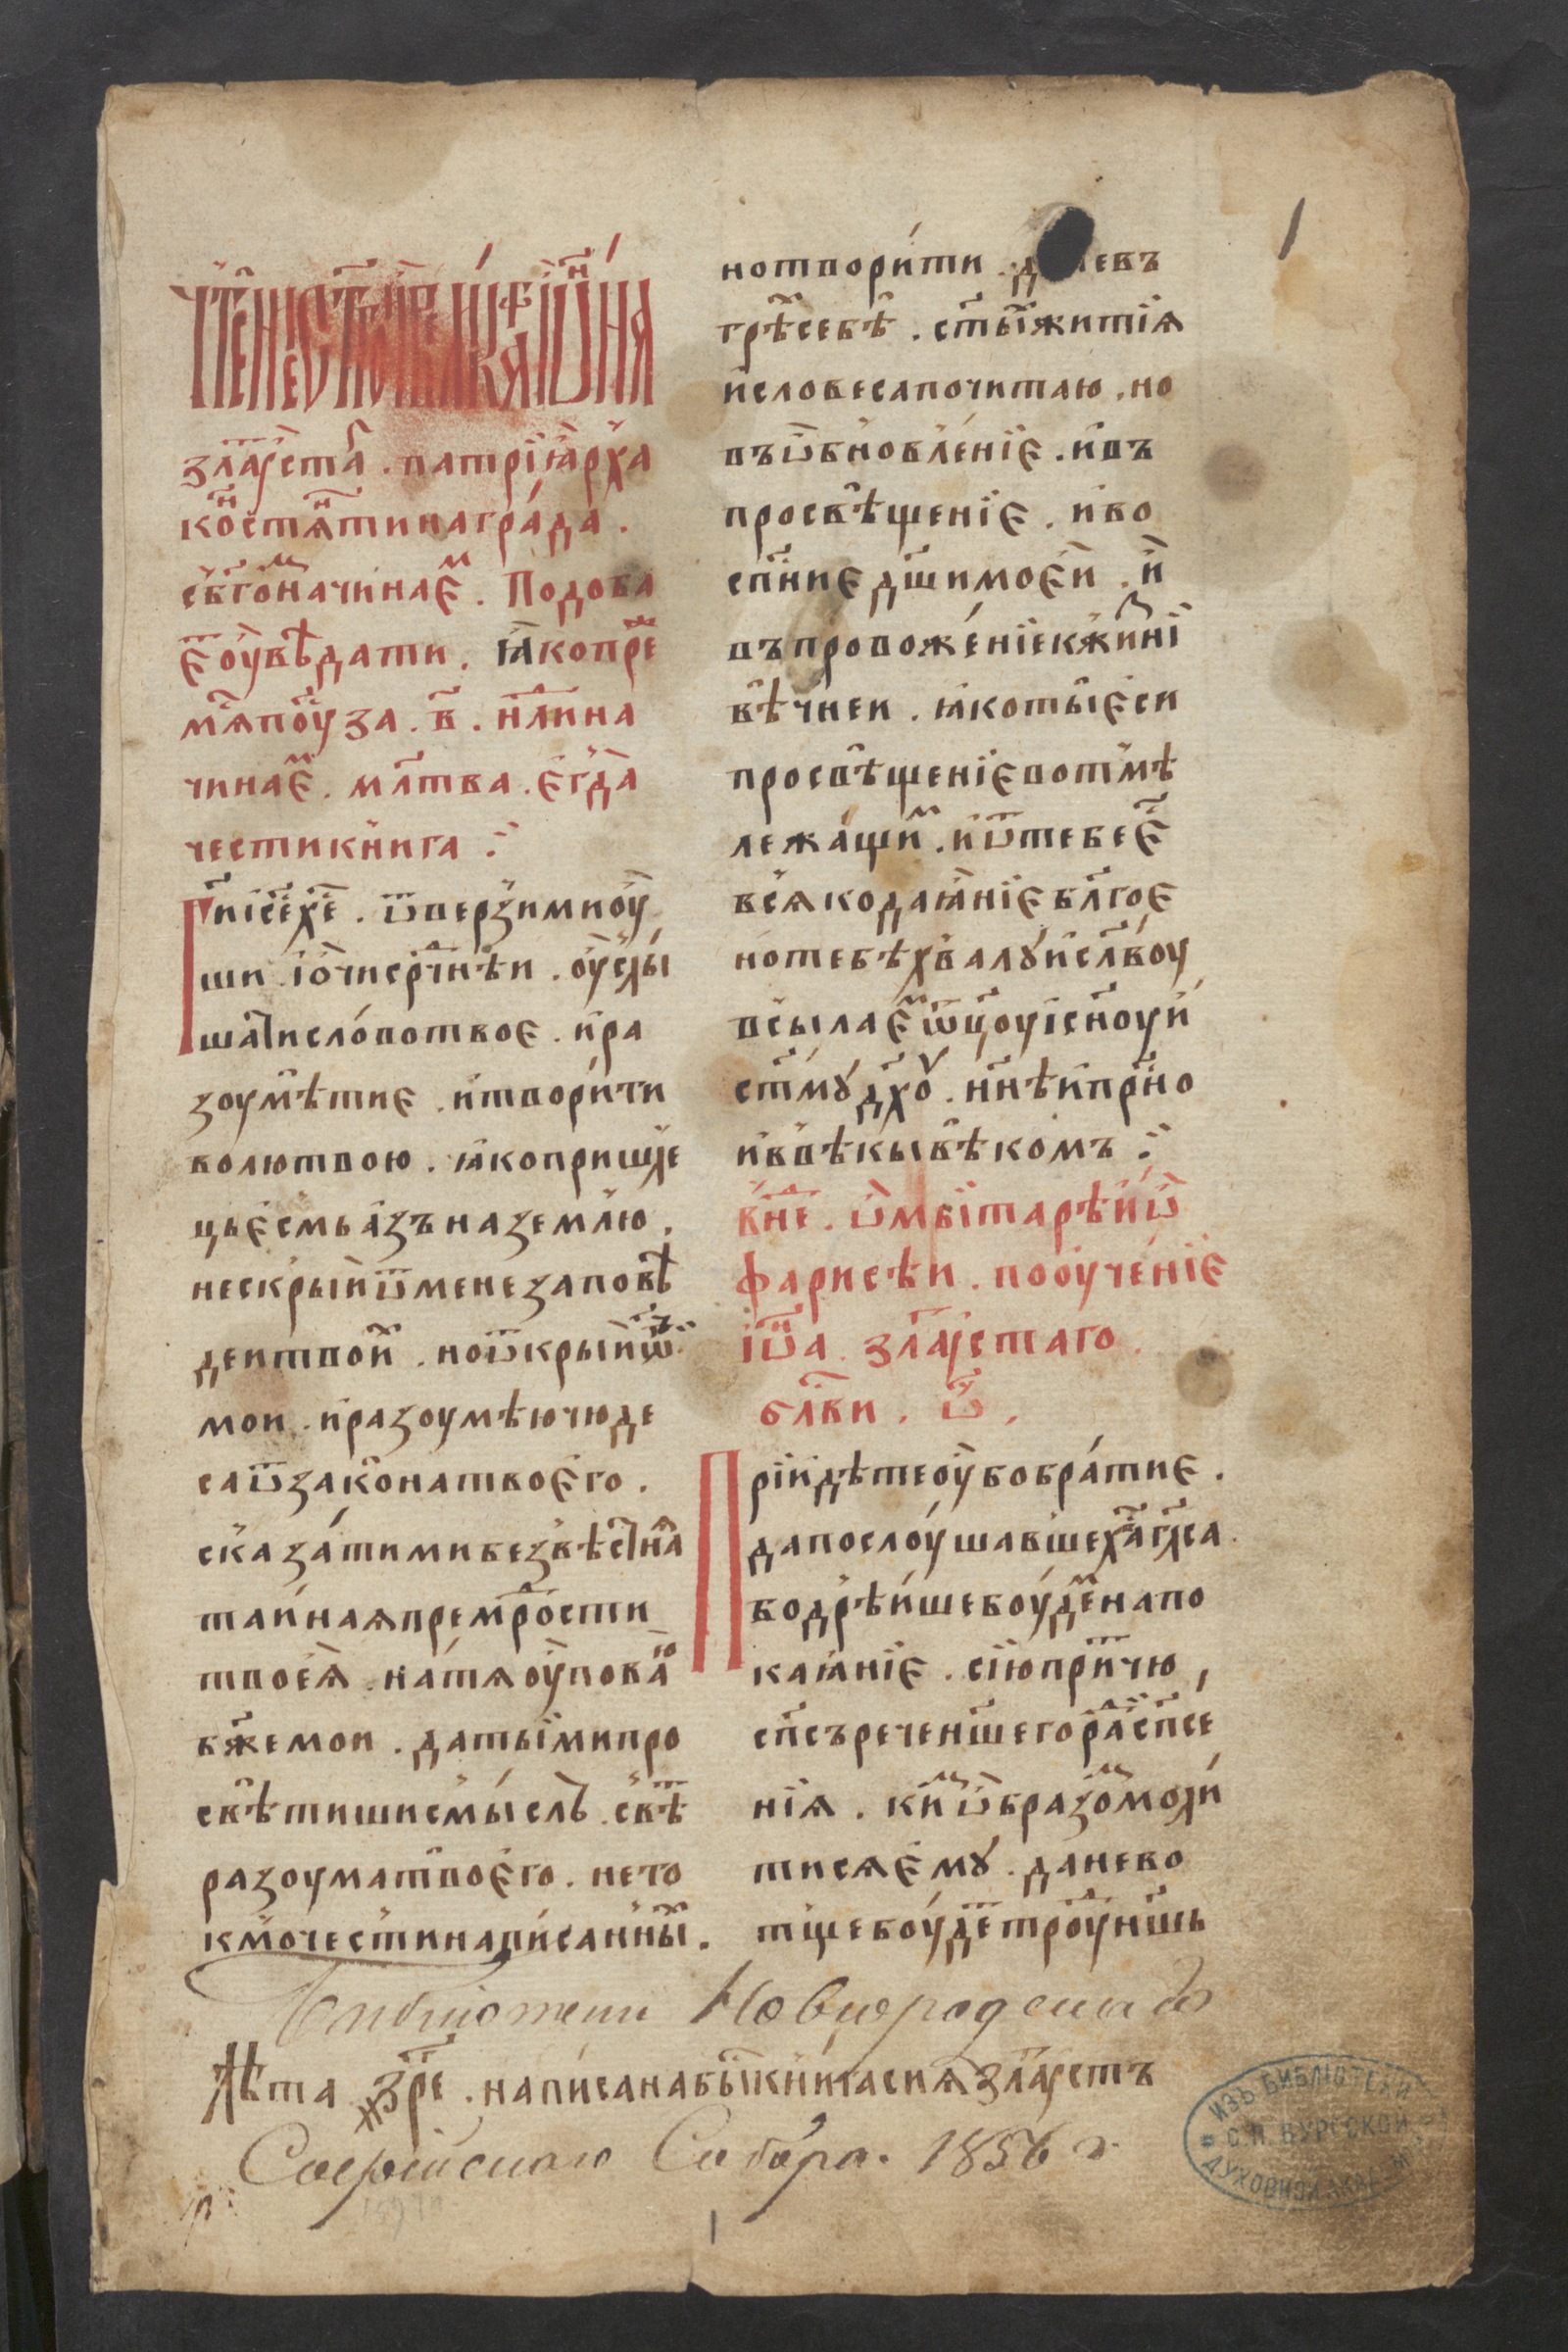 златоу́ста . патрїа́рха
костѧнтинагра́да .
Подоба
є҆оувѣдати . ꙗкопре
чинає . млтва . є҆гда
чести кни́га :
Ги іс҃е х҃е . ѿверзи ми оу
ши . і о҆чи срⷣчнѣи . оу҆слы
шати сло́во твоє . и҆ ра
зоумѣти є . и҆ твори́ти
волю твою . ꙗко пришле
ць є҆смь а҆зъ на землю .
не скрый ѿ мене заповѣ
деи твои . но ѿкрый ѿ
мои . и҆ разоумѣю чюде
са ѿ закона твоє҆го .
сказа́ти ми безвѣстнаа
таинаѧ премⷣрости
твоеѧ . на тѧ оу҆поваю
бж҃е мои . да ты ми про
свѣтиши смы́слъ . свѣ
разоума твоє҆го . не то
кмо чести написанны .
но твори́ти . д евъ
грѣ себѣ . ст҃ы житїѧ
и҆ словеса почитаю . но
въ ѡ҆бновле́нїє . и҆ въ
просвѣщенїє . и҆ во
сп҃ниє дш҃и моє҆и . и҆
въ провоже́нїе к жи҃нї
вѣчнеи . ꙗко ты є҆си
просвѣщенїє во тмѣ
лежа́щи . и҆ ѿ тебе є҆
всѧко даꙗнїє бл҃гоє
но тебѣ хвалꙋ и҆ сла́воу
всылає҆ ѿц҃оу і сн҃оу и҆
ст҃мꙋ дх҃оу . нн҃ѣ и҆ прⷭно
и҆ в вѣкы вѣкомъ :
в не . ѡ҆ мытарѣ и҆ ѡ҆
фарисѣи . пооуче́нїє
іѡ҃а . златоустаго .
блⷭви . ѿ .
Прїидѣте оу҆бо бра́тиє .
да послоу́шавше х҃а гл҃са
бодрѣи́ше боу́де на по
каꙗнїє . сїю при́тчю ,
сп҃съ рече нш҃его ра сп҃се
нїѧ . ки ѡ҆бразо моли́
тисѧ є҆мꙋ . да не во
тще боу́де троу нш҃ь
Библіотеки Новгородскаго
Лѣта ҂зр҃е . написана бы кни́га сиѧ златоустъ
Софійскаго Собора. 1856 г.
1
ИЗЪ БИБЛІОТЕКИ
С.П.БУРГСКОЙ
ДУХОВНОЙ АКАДЕМІИ